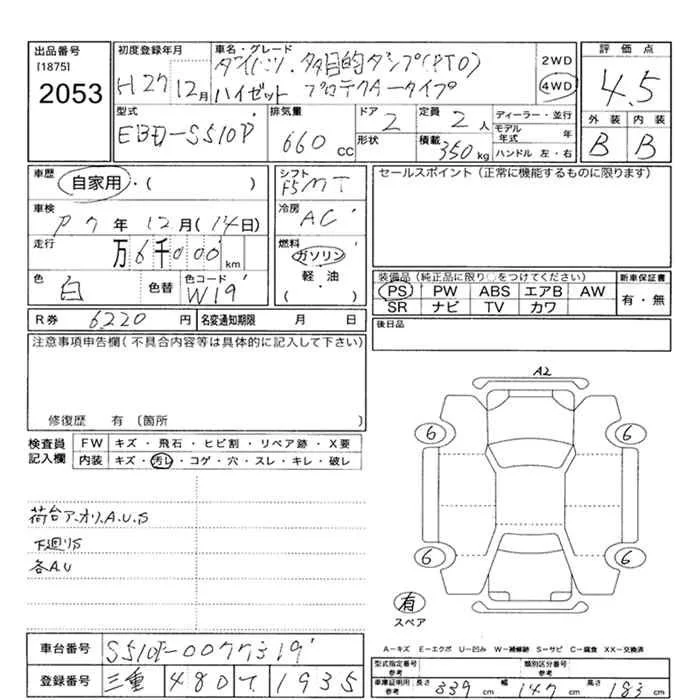 出品番号 [1875] 2053
初度登録年月 H27 12月
車名・グレード ダイハツ・多目的ダンプ(PTO)
ハイゼット プロテクAータイプ
2WD
4WD
評価点 4.5
外装 B 内装 B
型式 EBD-S510P
排気量 660 cc
ドア 2
形状
定員 2人
積載 350kg
ディーラー・並行
モデル年式 年
ハンドル 左・右
車歴 自家用・( )
車検 R7年12月(14日)
走行 万6千000km
色 白 色替 色コード W19
シフト F5 MT
冷房 AC
燃料 ガソリン
軽・油
( )
セールスポイント(正常に機能するものに限ります)
装備品(純正品に限り○をつけてください)
PS PW ABS エアB AW
SR ナビ TV カワ
新車保証書
有・無
R券 6220円 名変通知期限 月 日
後日品
注意事項申告欄(不具合内容等は具体的に記入して下さい)
修復歴 有〔箇所 〕
検査員記入欄
FW キズ・飛石・ヒビ割・リペア跡・X要
内装 キズ・汚レ・コゲ・穴・スレ・キレ・破レ
荷台アオリ.A.U.S
下廻りS
各A.U
A2
6
6
6
6
有
スペア
A-キズ E-エクボ U-凹み W-補修跡 S-サビ C-腐食 XX-交換済
車台番号 S510P-0077319
登録番号 三重 480 て 1935
型式指定番号 参考
類別区分番号
車庫証明用 参考 長さ 339cm 幅 147cm 高さ 183cm